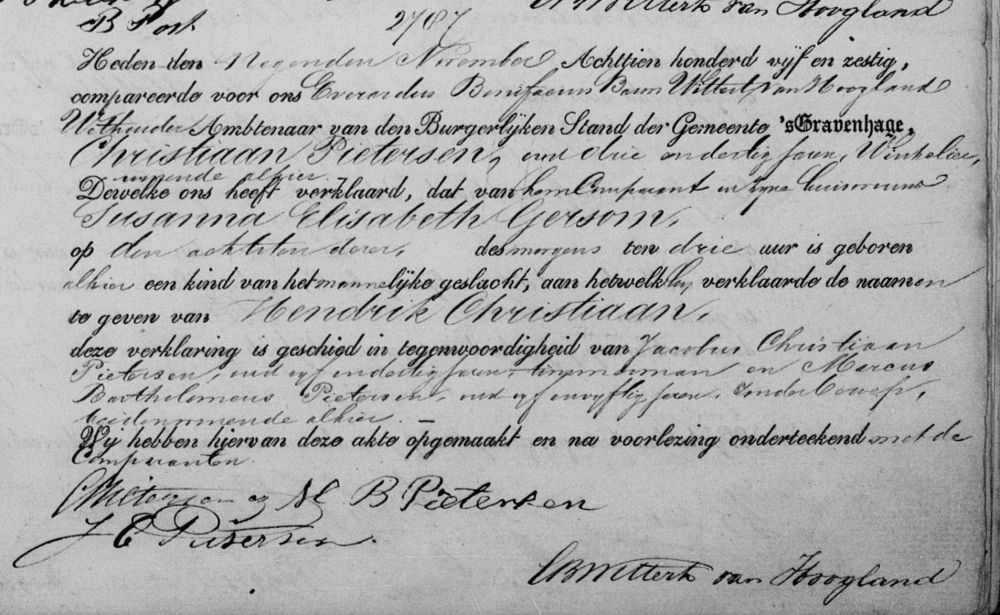 van Hoogland
B Post 2787
Heden den Negenden November Achttien honderd vijf en zestig,
compareerde voor ons Everardus Bonifacius Baron Wittert van Hoogland
Wethouder Ambtenaar van den Burgerlijken Stand der Gemeente 'sGravenhage,
Christiaan Pietersen, oud drie en dertig jaren, Winkelier,
wonende alhier
Dewelke ons heeft verklaard, dat van hem Comparant en zyne huisvrouw
Susanna Elisabeth Gersom,
op den achtsten dezer, des morgens ten drie uur is geboren
alhier een kind van het mannelijke geslacht, aan hetwelk hij verklaarde de naamen
te geven van Hendrik Christiaan,
deze verklaring is geschied in tegenwoordigheid van Jacobus Christiaan
Pietersen, oud vyf en dertig jaren, timmerman en Marcus
Bartholomeus Pietersen, oud vyf en vyftig jaren, zonder beroep,
beiden wonende alhier.
Wij hebben hiervan deze akte opgemaakt en na voorlezing onderteekend met de
Comparanten.
M B Pietersen
J C Pietersen.
EBWittert van Hoogland